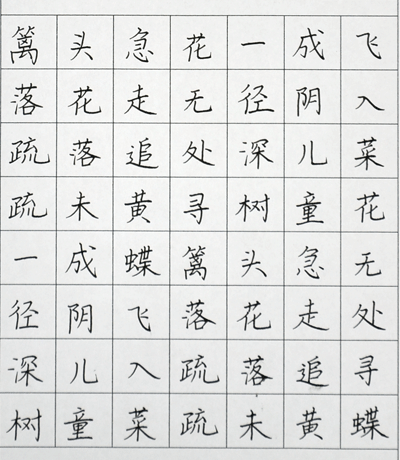 篱落疏疏一径深树
头花落未成阴儿童
急走追黄蝶飞入菜
花无处寻篱落疏疏
一径深树头花落未
成阴儿童急走追黄
飞入菜花无处寻蝶